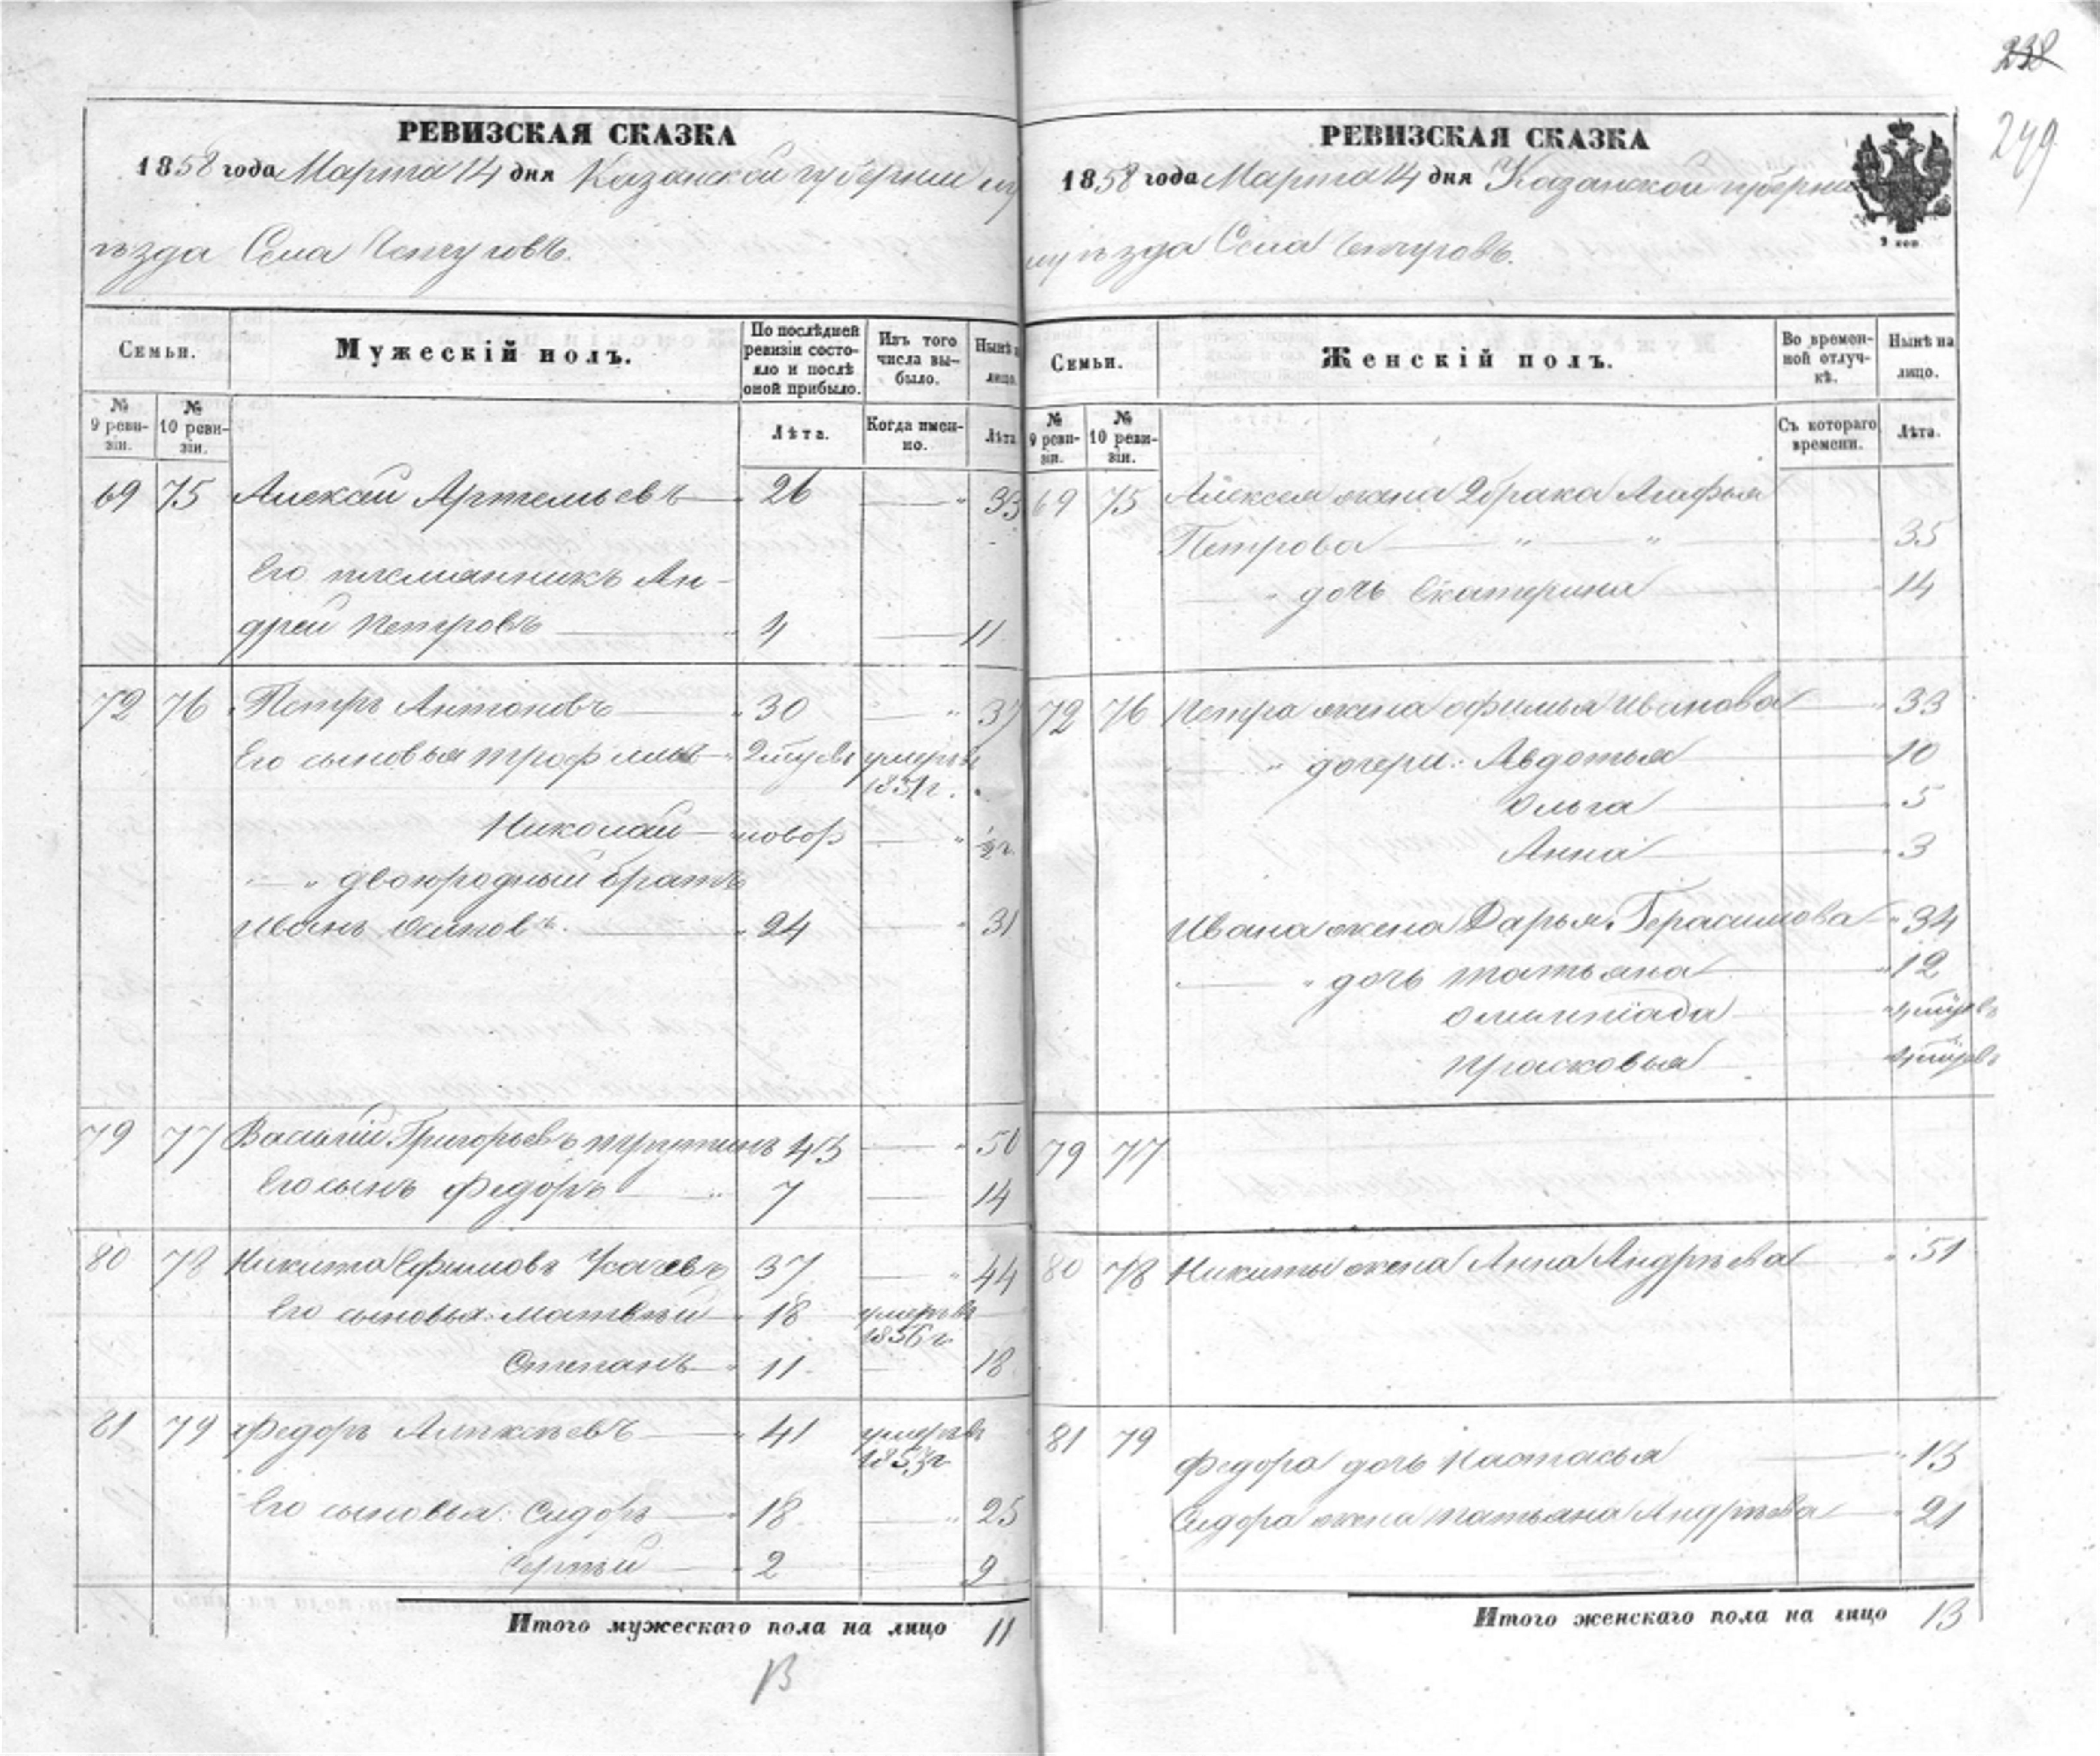 238
249
РЕВИЗСКАЯ СКАЗКА
1858 года Марта 14 дня Казанской губерніи
уѣзда Села
Семьи.
Мужескій полъ.
По послѣдней ревизіи состояло и послѣ оной прибыло.
Изъ того числа выбыло.
Нынѣ на лицо.
№ 9 ревизіи.
№ 10 ревизіи.
Лѣта.
Когда именно.
Лѣта
69 75 Алексѣй Артемьевъ 26 — 33
Его племянникъ Ан-
дрей Петровъ 4 — 11
72 76 Петръ Антоновъ 30 — 37
Его сыновья Трофимъ умеръ въ
Николай новор — ½ г.
— " двоюродный братъ
Иванъ Осиповъ. 24 — 31
79 77 Василій Григорьевъ 43 — 50
Его сынъ Федоръ 7 — 14
80 78 Никита Ефимовъ Усачевъ 37 — 44
Его сыновья: Матвѣй 18 умеръ въ
1856 г.
Степанъ 11 — 18
81 79 Федоръ Алексѣевъ 41 умеръ въ
1853 г
Его сыновья: Сидоръ 18 — 25
Сергѣй 2 9
Итого мужескаго пола на лицо 11
13
РЕВИЗСКАЯ СКАЗКА
1858 года Марта 14 дня Казанской губерніи
уѣзда Села
Семьи.
Женскій полъ.
Во временной отлучкѣ.
Нынѣ на лицо.
№ 9 ревизіи.
№ 10 ревизіи.
Съ котораго времени.
Лѣта.
69 75 Алексея жена 2 брака Агафья
Петрова — " — " 35
— " дочь Екатерина 14
72 76 Петра жена Офимья Иванова 33
— " дочери: Авдотья 10
Ольга 5
Анна 3
Ивана жена Дарья Герасимова 34
— " дочь Татьяна 12
Олимпіада
Прасковья
79 77
80 78 Никиты жена Анна Андрѣева 51
81 79
Федора дочь Настасья — 13
Сидора жена Татьяна Андрѣева 21
Итого женскаго пола на лицо 13